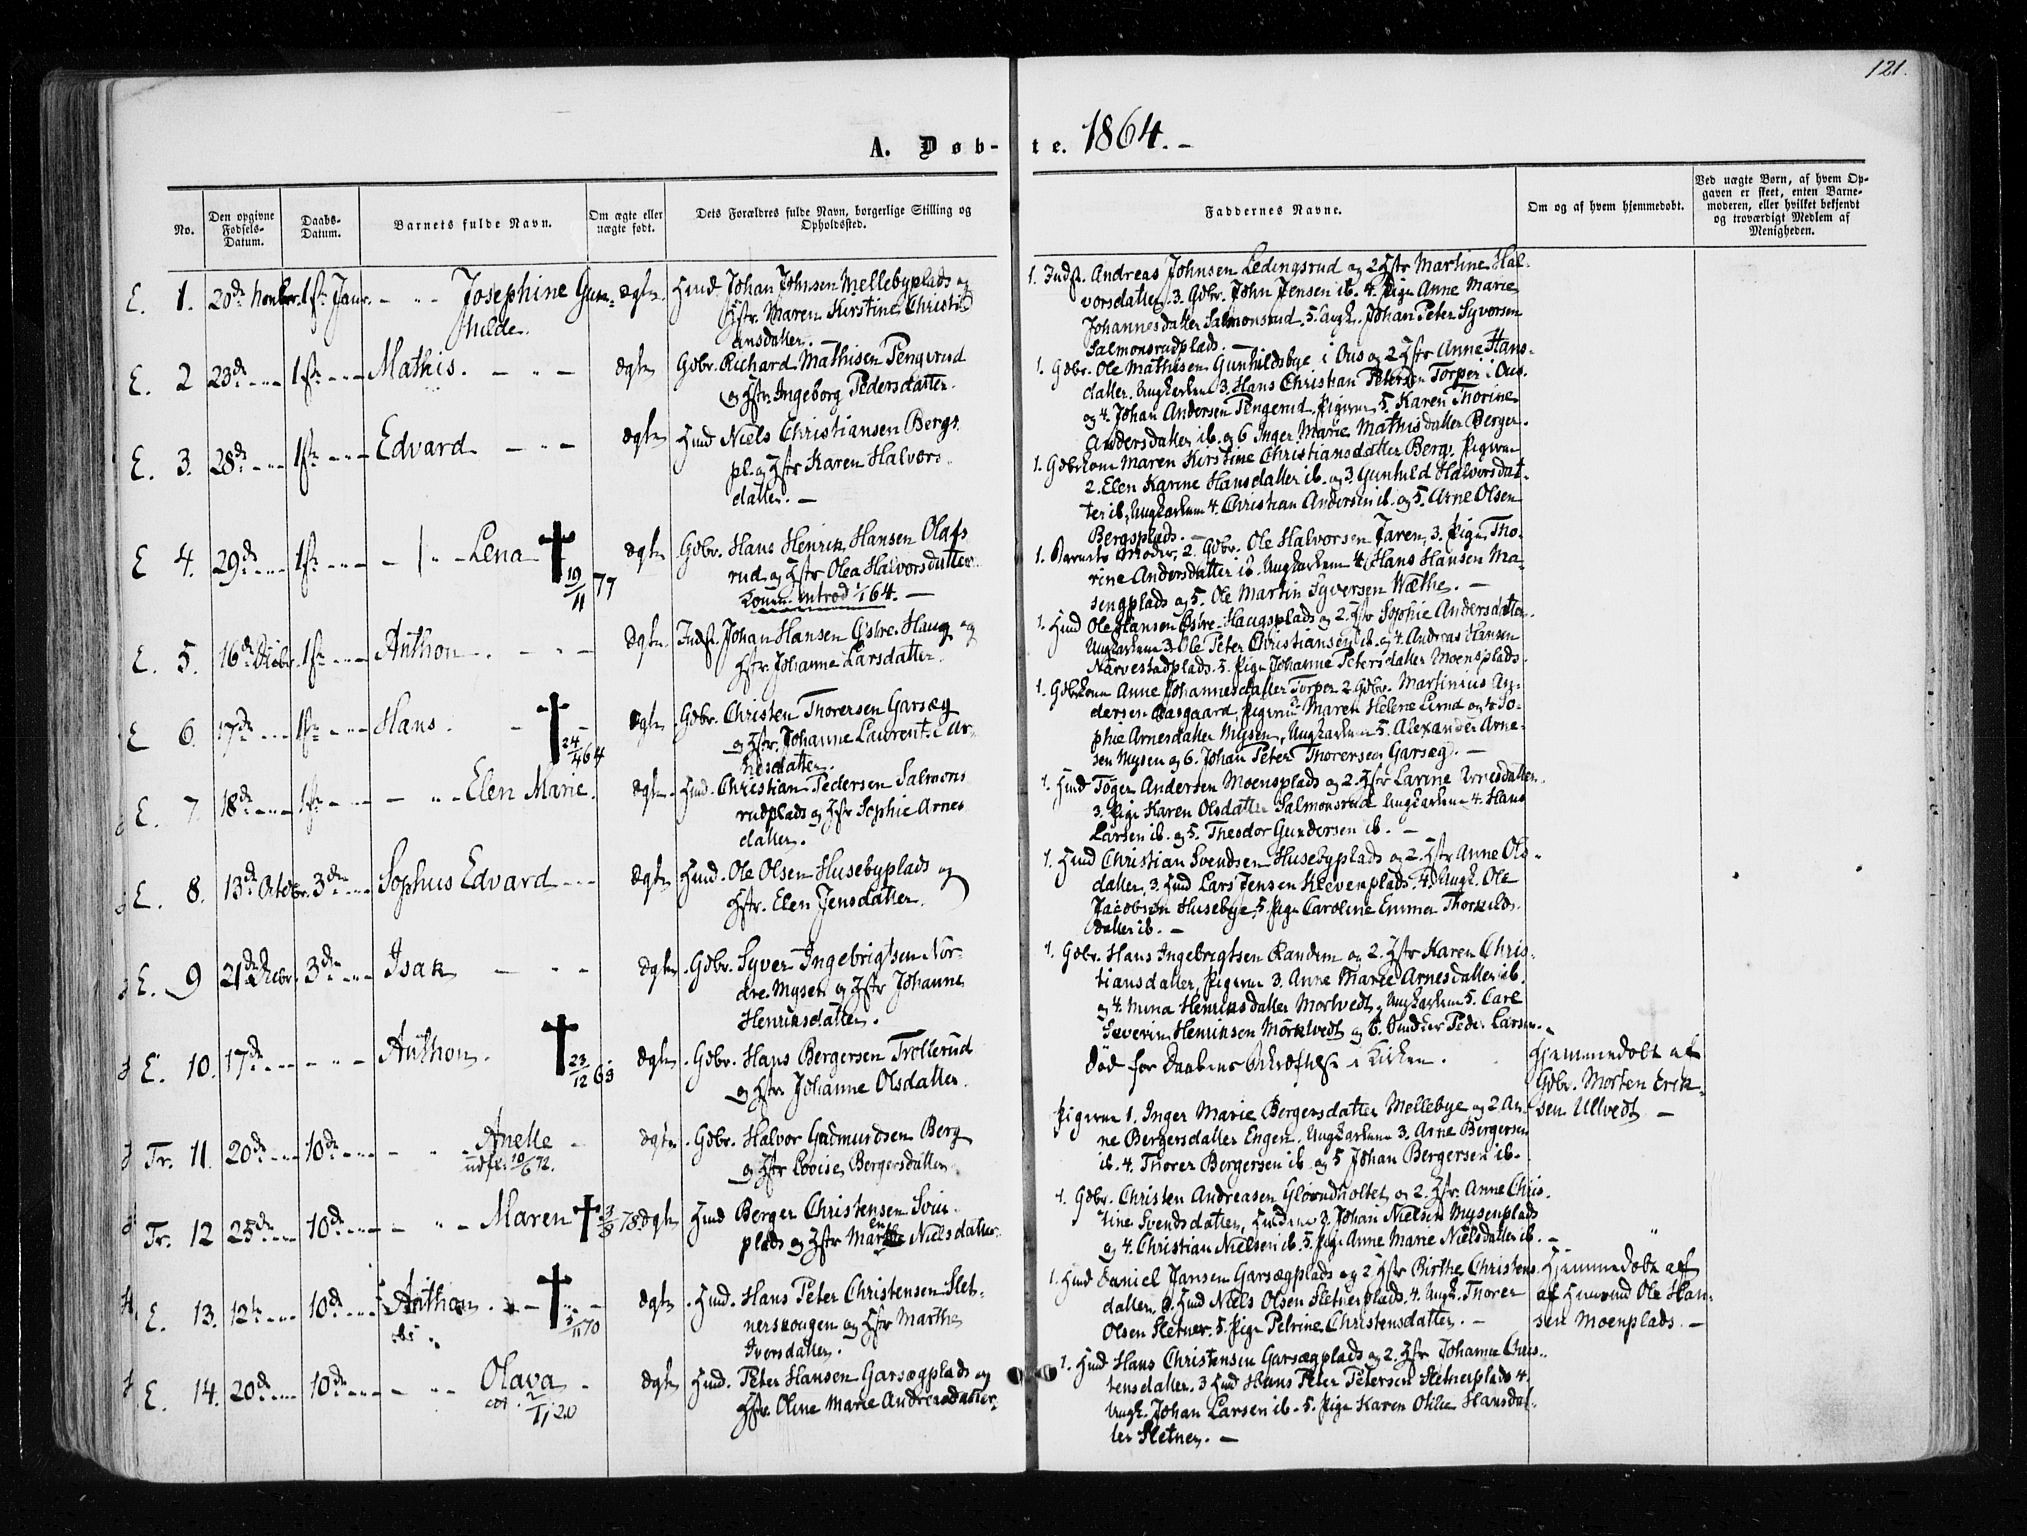 121.
A. Døb-te. 1864.-
No.
Den opgivne Fødsels-Datum.
Daabs-Datum.
Barnets fulde Navn.
Om ægte eller uægte født.
Dets Forældres fulde Navn, borgerlige Stilling og Opholdssted.
Faddernes Navne.
Om og af hvem hjemmedøbt.
Ved uægte Børn, af hvem Op-
gaven er skeet, enten Barne-
moderen, eller hvilket bekjendt
og troværdigt Medlem af
Menigheden.
E. 1. 20de Novbr. 1ste Janr. - " - Josephine Gun-
hilde.
ægte. Huusd. Johan Johnsen Mellebyplads og
Hstr. Maren Kirstine Christi-
ansdatter. -
1. Indst. Andreas Johnsen Ledingsrud og 2 Hstr Martine Hal-
vorsdatter, 3. Gdbr. John Jensen ib. 4. Pige Anne Marie
Johannesdatter Salmonsrud. 5. Ungk. Johan Peter Syversen
Salmonsrudplads. -
E. 2 23de - " - 1ste - " - Mathis. - " -
ægte Gdbr. Richard Mathisen Pengerud
og Hstr. Ingeborg Pedersdatter.
1. Gdbr. Ole Mathisen Gunhildsbye i Ous og 2 Hstr Anne Hans-
datter. Ungkarlene 3. Hans Christian Petersen Torper i Ous.
og 4. Johan Andersen Pengerud. Pigerne 5. Karen Thorine
Andersdatter ib. og 6 Inger Marie Mathisdatter Berger.
E. 3. 28de - " - 1ste - " - Edvard - " -
ægte Huusd Niels Christiansen Bergs
pl. og Hstr Karen Halvors-
datter. -
1. Gdbrkone Maren Kirstine Christiansdatter Berg. Pigerne
2. Elen Karine Hansdatter ib. og 3. Gunhild Halvorsdat-
ter ib, Ungkarlene 4. Christian Andersen ib. og 5. Arne Olsen
Bergsplads. -
E 4. 29de - " - 1ste - " - - " - Lena ✝ 19/11 77
ægte Gdbr. Hans Henrik Hansen Olafs
rud og Hstr Olea Halvorsdatter.
Konen introd 1/1 64. -
1. Barnets Moder, 2. Gdbr. Ole Halvorsen Jaren, 3. Pige Tho-
rine Andersdatter ib. Ungkarlene 4. Hans Hansen Ma-
sengplads og 5. Ole Martin Syversen Wæthe. -
E. 5. 16de Decbr. 1ste - " - Anthon. - " -
ægte. Indst. Johan Hansen Østre-Haug og
Hstr. Johanne Larsdatter.
1. Huusd Ole Hansen Østre-Haugsplads og 2. Hstr Sophie Andersdatter.
Ungkarlene 3. Ole Peter Christiansen ib. og 4. Andreas Hansen
Narvestadplads. 5. Pige Johanne Petersdatter Moensplads.
E 6. 17de - " - 1ste - " - Hans. - ✝ 24/4 64
ægte Gdbr. Christen Thorersen Garsæg
og Hstr. Johanne Laurentse Ar-
nesdatter.
1. Gdbrkone Anne Johannesdatter Torper 2. Gdbr. Martinius An-
dersen Aasgaard, Pigerne 3. Maren Helene Lund og 4. So-
phie Arnesdatter Mysen, Ungkarlene 5. Alexander Arne-
sen Mysen og 6. Johan Peter Thorersen Garsæg. -
E. 7. 18de - " - 1ste - " - - " - Elen Marie.
ægte. Huusd. Christian Pedersen Salmons
rudplads og Hstr Sophie Arnes
datter.
1. Huusd Toger Andersen Moensplads og 2. Hstr Larine Arnesdatter.
3. Pige Karen Olsdatter Salmonsrud Ungkarlene 4. Hans
Larsen ib. og 5. Theodor Gundersen ib. -
E. 8. 13de Octobr. 3die - " - Sophus Edvard - -
ægte Huusd. Ole Olsen Husebyplads og
Hstr. Elen Jensdatter.
1. Huusd Christian Svendsen Husebyplads og 2. Hstr Anne Ols-
datter, 3. Huusd Lars Jensen Kleivenplads. 4. Ungk. Ole
Jacobsen Husebye, 5. Pige Caroline Emma Thorkilds-
datter ib. -
E. 9 21de Decbr. 3die - " - Isak - " -
ægte. Gdbr. Syver Ingebrigtsen Nor-
dre. Mysen og Hstr Johanne
Henriksdatter.
1. Gdbr. Hans Ingebrigtsen Randem og 2. Hstr Karen Chris-
tiansdatter, Pigerne 3. Anne Marie Arnesdatter ib.
og 4. Mina Henriksdatter Mortvedt, Ungkarlene 5. Carl
Severin Henriksen Mørtvedt og 6. Peder Larsen.
E. 10. 17de - " - - " - Anthon. ✝ 23/12 63
ægte. Gdbr. Hans Bergersen Trollerud
og Hstr. Johanne Olsdatter.
Død før Daabens Bekræftelse i Kirken.
Hjemmedøbt af
Gdbr. Morten Erik-
sen Ullvedt -
Tr. 11. 20de - " - 10de - " - - " - Anette -
udfl. 10/6 72.
ægte. Gdbr. Halvor Gudmundsen Berg
og Hstr Lovise Bergersdatter.
Pigerne 1. Inger Marie Bergersdatter Mellebye og 2 An-
ne Bergersdatter Enger. Ungkarlene 3. Arne Bergersen
ib. 4. Thorer Bergersen ib og 5 Johan Bergersen ib.
Tr. 12 25de - " - 10de - " - - " - Maren ✝ 3/8 78.
ægte Huusd Berger Christensen Svin-
plads og Hstr Maren Nielsdatter.
1. Gdbr. Christen Andreasen Glorudholtet og 2. Hstr. Anne Chris-
tine Svendsdatter, Huusmd 3. Johan Nielsen Mysenplads
og 4. Christian Nielsen ib. 5. Pige Anne Marie Nielsdatter ib. -
E. 13. 12te - " - 10de - " - Anthon. ✝ 5/11 70
ægte. Huusd. Hans Peter Christensen Slet-
nerskougen og Hstr Marthe
Iversdatter.
1. Huusd Daniel Jansen Garsægplads og 2 Hstr Birthe Christens
datter. 3. Huusd Niels Olsen Sletnerplads. 4. Ungk. Thorer
Olsen Sletner. 5. Pige Petrine Christensdatter. -
Hjemmedøbt af
af Huusmd Ole Han-
sen Moenplads. -
E. 14. 20de - " - 10de - " - - " - Olava -
2/11 20
ægte Huusd. Peter Hansen Garsægplads og
Hstr. Oline Marie Andreasdatter.
1. Huusd Hans Christensen Garsægplads og 2. Hstr Johanne Chris-
tensdatter. 3 Huusd Hans Peter Petersen Sletnerplads 4.
Ungk. Johan Larsen ib. 5. Pige Karen Otilie Hansdat-
ter Sletner. -